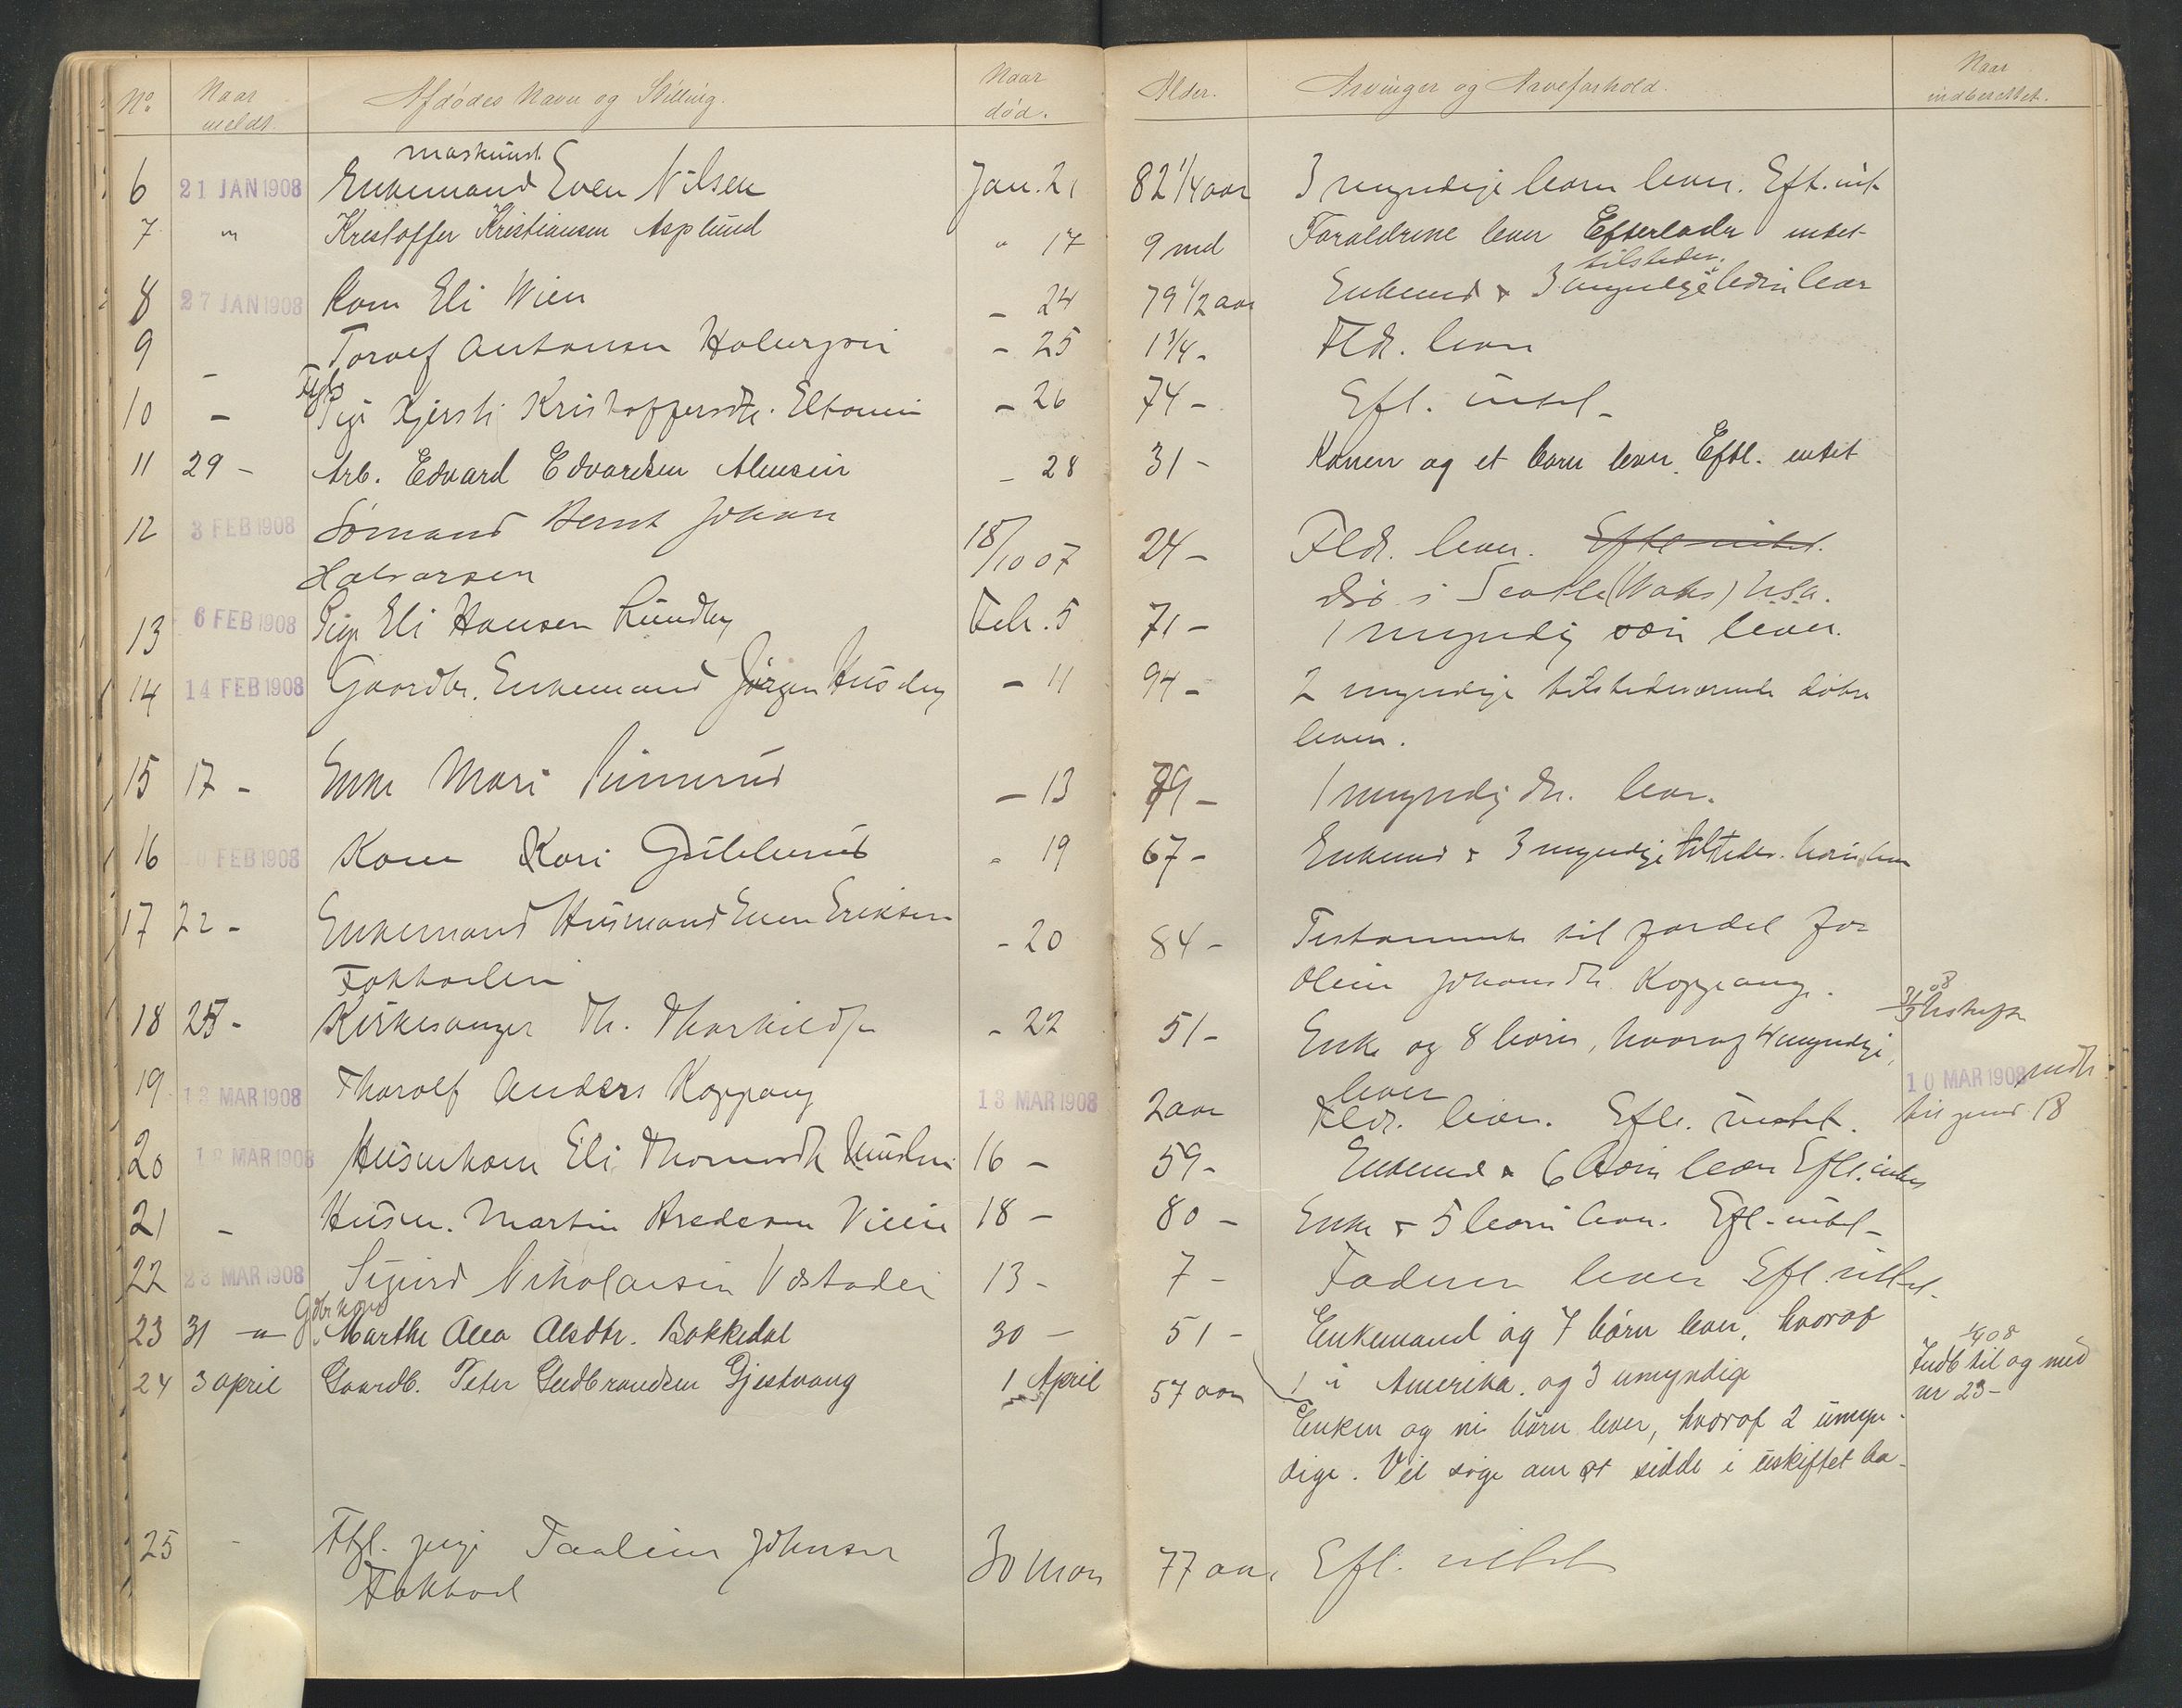 No. Naar meldt. Afdødes Navn og Stilling. Naar død. Alder. Arvinger og Arveforhold. Naar indberettet.
maskinist
6 21 JAN 1908 Enkemand Even Nilsen Jan. 21 82 1/4 aar 3 myndige børn lever. Eft. int.
7 " Kristoffer Kristiansen Asplund " 17 9 md Forældrene lever Efterlader intet
tilsteder.
8 27 JAN 1908 Kone Eli Wien – 24 79 1/2 aar Enkemd & 3 myndige børn lever
9 – Torolf Antonsen – 25 1 3/4 – Fldr. lever
10 – Pige Kjersti Kristoffersdtr. – 26 74 – Eftl. intet –
11 29 – Arb. Edvard Edvardsen – 28 31 – Konen og et barn lever. Eftl. intet
12 3 FEB 1908 Sømand Bernt Johan 18/10 07 24 – Fldr. lever. Eftl intet.
Halvorsen
død i Seatle (Wahs) U.S.A.
13 6 FEB 1908 Pige Eli Hansen Lundby Febr. 5 71 – 1 myndig søn lever.
14 14 FEB 1908 Gaardbr. Enkemand Jørgen Huseby – 11 94 – 2 myndige tilstedeværende døtre
lever.
15 17 – Enke Mari – 13 79 – 1 myndig dtr. lever.
16 FEB 1908 Kone Kari – 19 67 – Enkemd & 3 myndige tilsteder. børn lever
17 22 – Enkemand Husmand Even Eriksen – 20 84 – Testamente til fordel for
Oline Johansdtr. Koppang.
18 25 – Kirkesanger Th. Thorkildsen – 22 51 – Enke og 8 børn, hvoraf 4 myndige,
lever
10 MAR 1908 indb.
til 18
19 13 MAR 1908 Thorolf Anders Koppang 13 MAR 1908 2 aar Fldr. lever. Eftl. intet.
20 18 MAR 1908 Husmkone Eli Thomasdtr 16 – 59 – Enkemd & 6 børn lever Eftl. intet
21 – Husm. Martin Vieie 18 – 80 – Enke & 5 børn lever. Eftl. intet –
22 23 MAR 1908 Sigurd Nikolaisen 13 – 7 – Faderen lever Eftl. intet.
Gdbr kone
23 31 – Marthe Alea Alsdtr. Bakkedal 30 – 51 – Enkemand og 7 børn lever, hvoraf
1 i Amerika. og 3 umyndige
1/4 08
Indb til og med
nr 23 –
24 3 april Gaardb. Peter Gudbrandsen Gjestvang 1 April 57 aar
Enken og ni børn lever, hvoraf 2 umyn-
dige. Vil søge om at sidde i uskiftet bo –
25 – Ftgl. pige Johnsen 30 Mars 77 aar Eftl. intet
Fokhoel